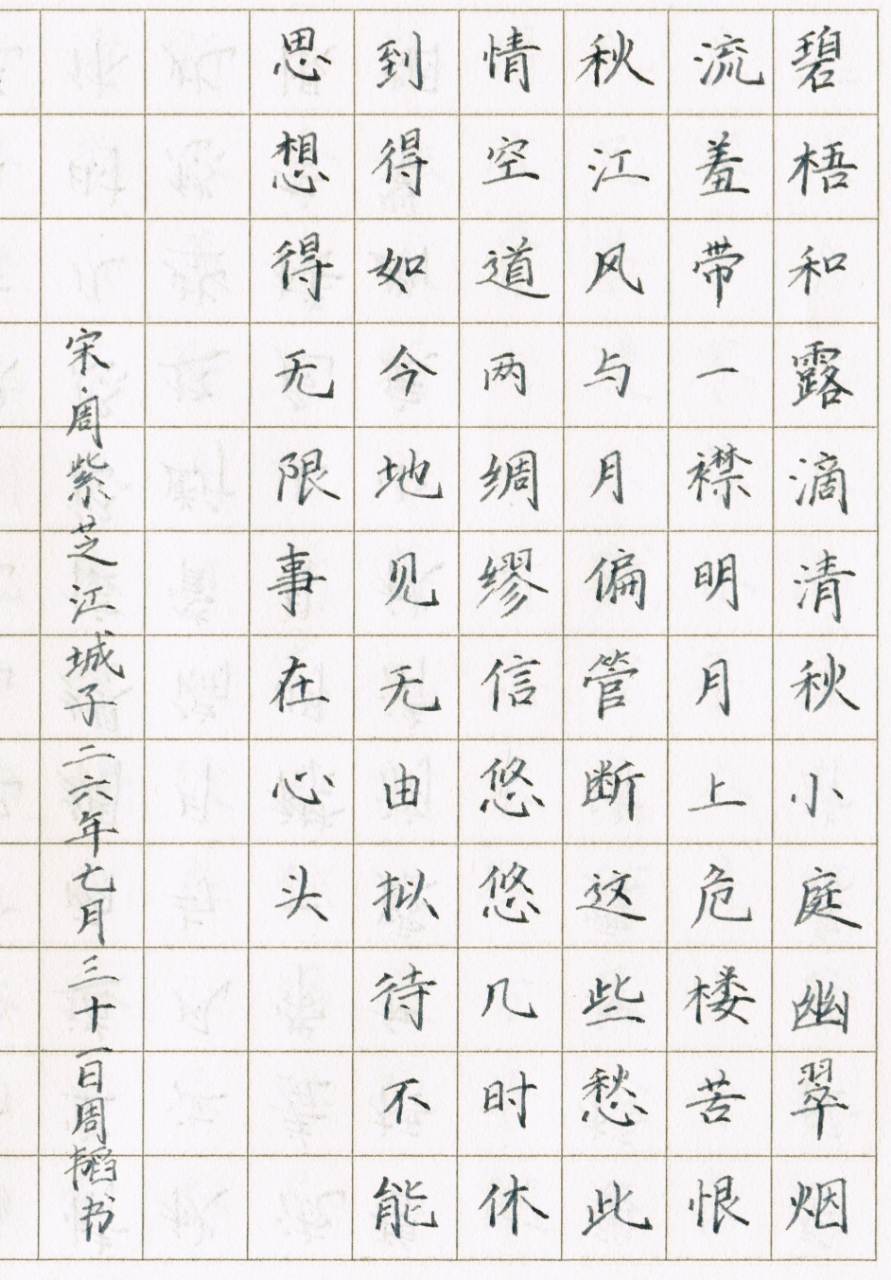 碧梧和露滴清秋小庭幽翠烟
流羞带一襟明月上危楼苦恨
秋江风与月偏管断这些愁此
情空道两绸缪信悠悠几时休
到得如今地见无由拟待不能
思想得无限事在心头
宋周紫芝江城子二六年七月三十一日周韬书